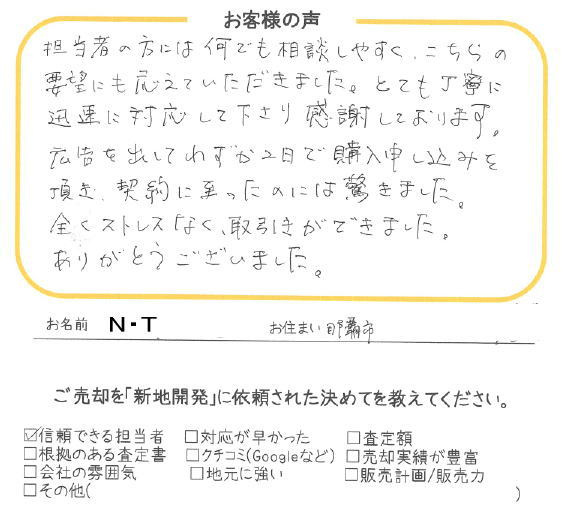 お客様の声
担当者の方には何でも相談しやすく、こちらの
要望にも応えていただきました。とても丁寧に
迅速に対応して下さり感謝しております。
広告を出してわずか2日で購入申し込みを
頂き、契約に至ったのには驚きました。
全くストレスなく、取引きができました。
ありがとうございました。
お名前 N・T お住まい 那覇市
ご売却を「新地開発」に依頼された決めてを教えてください。
☑信頼できる担当者 □対応が早かった □査定額
□根拠のある査定書 □クチコミ(Googleなど) □売却実績が豊富
□会社の雰囲気 □地元に強い □販売計画/販売力
□その他( )